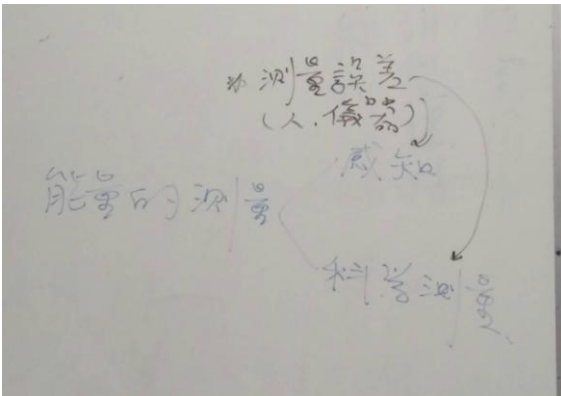 ※測量誤差
(人,儀器)
感知
能量的測量
科學測量